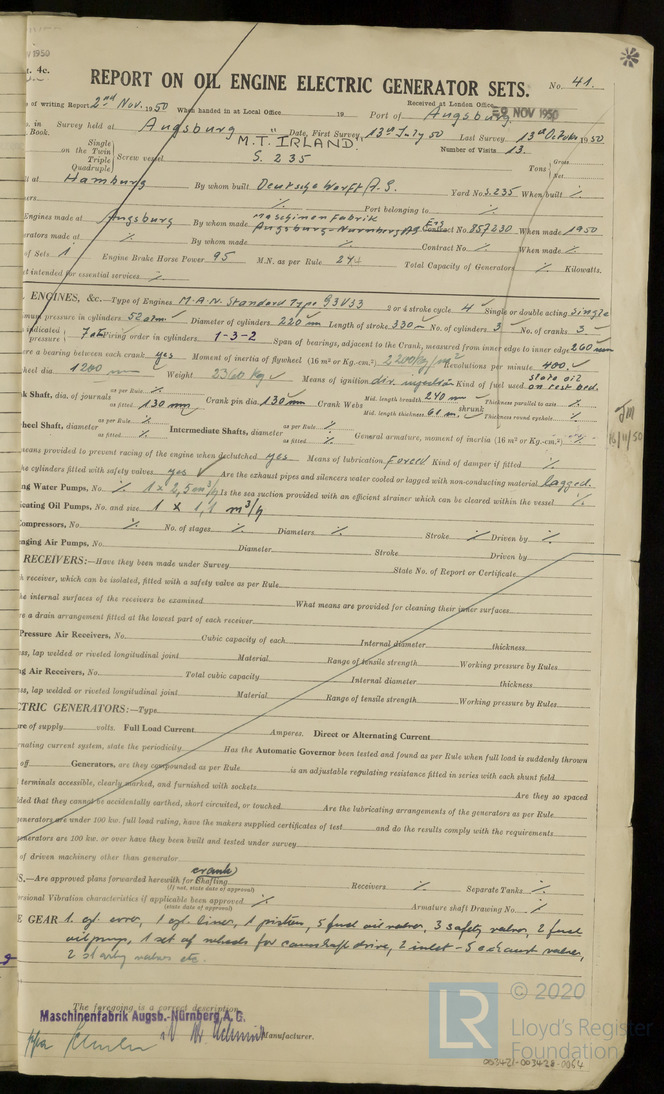 1950
t. 4c.
REPORT ON OIL ENGINE ELECTRIC GENERATOR SETS.
No. 41.
Received at London Office
9 NOV 1950
of writing Report 2nd Nov. 1950 When handed in at Local Office 19 Port of Augsburg
in Book. Survey held at Augsburg Date, First Survey 13th July 50 Last Survey 13th October 1950
Number of Visits 13.
Single on the Twin Triple Quadruple Screw vessel "M.T. IRLAND" S. 235 Tons Gross Net
at Hamburg By whom built Deutsche Werft A.G. Yard No. S.235 When built %
ers % Port belonging to %
Engines made at Augsburg By whom made Maschinenfabrik Augsburg-Nürnberg A.G. Eng Contract No. 857230 When made 1950
erators made at % By whom made % Contract No. % When made %
of Sets 1 Engine Brake Horse Power 95 M.N. as per Rule 24 Total Capacity of Generators % Kilowatts.
et intended for essential services %
ENGINES, &c.—Type of Engines M.A.N. Standard Type G3V33 2 or 4 stroke cycle 4 Single or double acting Single
mum pressure in cylinders 52 atm Diameter of cylinders 220 mm Length of stroke 330 No. of cylinders 3 No. of cranks 3
indicated pressure 7 at Firing order in cylinders 1-3-2 Span of bearings, adjacent to the Crank, measured from inner edge to inner edge 260 mm
ere a bearing between each crank yes Moment of inertia of flywheel (16 m² or Kg.-cm.²) 2200 kg/m² Revolutions per minute 400.
heel dia. 1200 mm Weight 2360 kg Means of ignition dir. injection Kind of fuel used on test bed.
k Shaft, dia. of journals as per Rule % as fitted 130 mm Crank pin dia. 130 mm Crank Webs Mid. length breadth 240 mm Mid. length thickness 61 m. shrunk Thickness parallel to axis % Thickness round eyehole %
heel Shaft, diameter as per Rule % as fitted % Intermediate Shafts, diameter as per Rule % as fitted % General armature, moment of inertia (16 m² or Kg.-cm.²)
means provided to prevent racing of the engine when declutched yes Means of lubrication Forced Kind of damper if fitted %
he cylinders fitted with safety valves yes Are the exhaust pipes and silencers water cooled or lagged with non-conducting material lagged.
ng Water Pumps, No. % 1 x 2,5 m³/h Is the sea suction provided with an efficient strainer which can be cleared within the vessel %
icating Oil Pumps, No. and size 1 x 1,1 m³/h
Compressors, No. % No. of stages % Diameters % Stroke % Driven by %
nging Air Pumps, No. Diameter Stroke Driven by
RECEIVERS:—Have they been made under Survey State No. of Report or Certificate
h receiver, which can be isolated, fitted with a safety valve as per Rule
he internal surfaces of the receivers be examined What means are provided for cleaning their inner surfaces
re a drain arrangement fitted at the lowest part of each receiver
Pressure Air Receivers, No. Cubic capacity of each Internal diameter thickness
ss, lap welded or riveted longitudinal joint Material Range of tensile strength Working pressure by Rules
ng Air Receivers, No. Total cubic capacity Internal diameter thickness
ss, lap welded or riveted longitudinal joint Material Range of tensile strength Working pressure by Rules
CTRIC GENERATORS:—Type
re of supply volts. Full Load Current Amperes. Direct or Alternating Current
rnating current system, state the periodicity Has the Automatic Governor been tested and found as per Rule when full load is suddenly thrown
off Generators, are they compounded as per Rule is an adjustable regulating resistance fitted in series with each shunt field
terminals accessible, clearly marked, and furnished with sockets Are they so spaced
lded that they cannot be accidentally earthed, short circuited, or touched Are the lubricating arrangements of the generators as per Rule
generators are under 100 kw. full load rating, have the makers supplied certificates of test and do the results comply with the requirements
generators are 100 kw. or over have they been built and tested under survey
of driven machinery other than generator
S.—Are approved plans forwarded herewith for Shafting crank Receivers % Separate Tanks %
(If not, state date of approval)
orsional Vibration characteristics if applicable been approved % Armature shaft Drawing No. %
(state date of approval)
E GEAR 1 cyl. cover, 1 cyl. liner, 1 piston, 5 fuel oil valves, 3 safety valves, 2 fuel
oil pumps, 1 set of wheels for camshaft drive, 2 inlet - 5 exhaust valves,
2 valves etc.
The foregoing is a correct description
Maschinenfabrik Augsb.-Nürnberg A.G.
Manufacturer.
16/11/50
LR
© 2020
Lloyd's Register
Foundation
003421-003428-0064